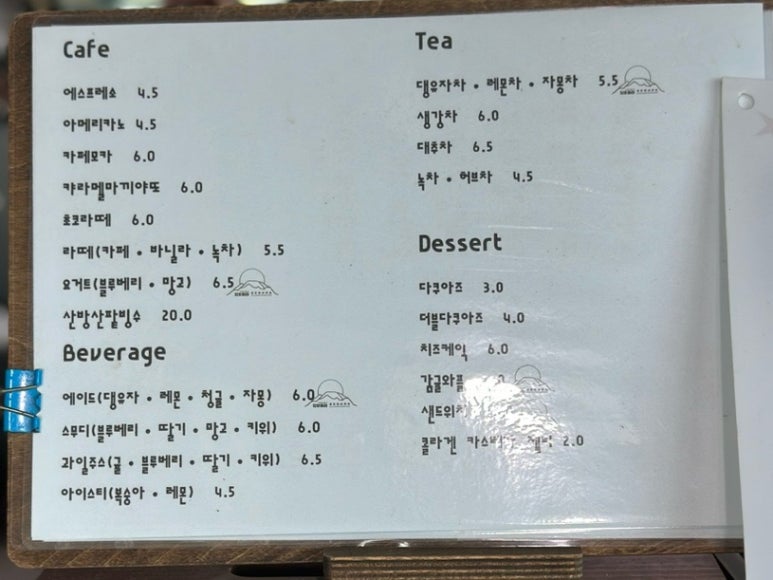 Cafe
에스프레소 4.5
아메리카노 4.5
카페모카 6.0
캬라멜마끼야또 6.0
쵸코라떼 6.0
라떼(카페 • 바닐라 • 녹차) 5.5
요거트(블루베리 • 망고) 6.5
산방산팥빙수 20.0
Beverage
에이드(댕유자 • 레몬 • 청귤 • 자몽) 6.0
스무디(블루베리 • 딸기 • 망고 • 키위) 6.0
과일주스(귤 • 블루베리 • 딸기 • 키위) 6.5
아이스티(복숭아 • 레몬) 4.5
Tea
댕유자차 • 레몬차 • 자몽차 5.5
생강차 6.0
대추차 6.5
녹차 • 허브차 4.5
Dessert
다쿠아즈 3.0
더블다쿠아즈 4.0
치즈케익 6.0
감귤와플
샌드위치
콜라겐 2.0